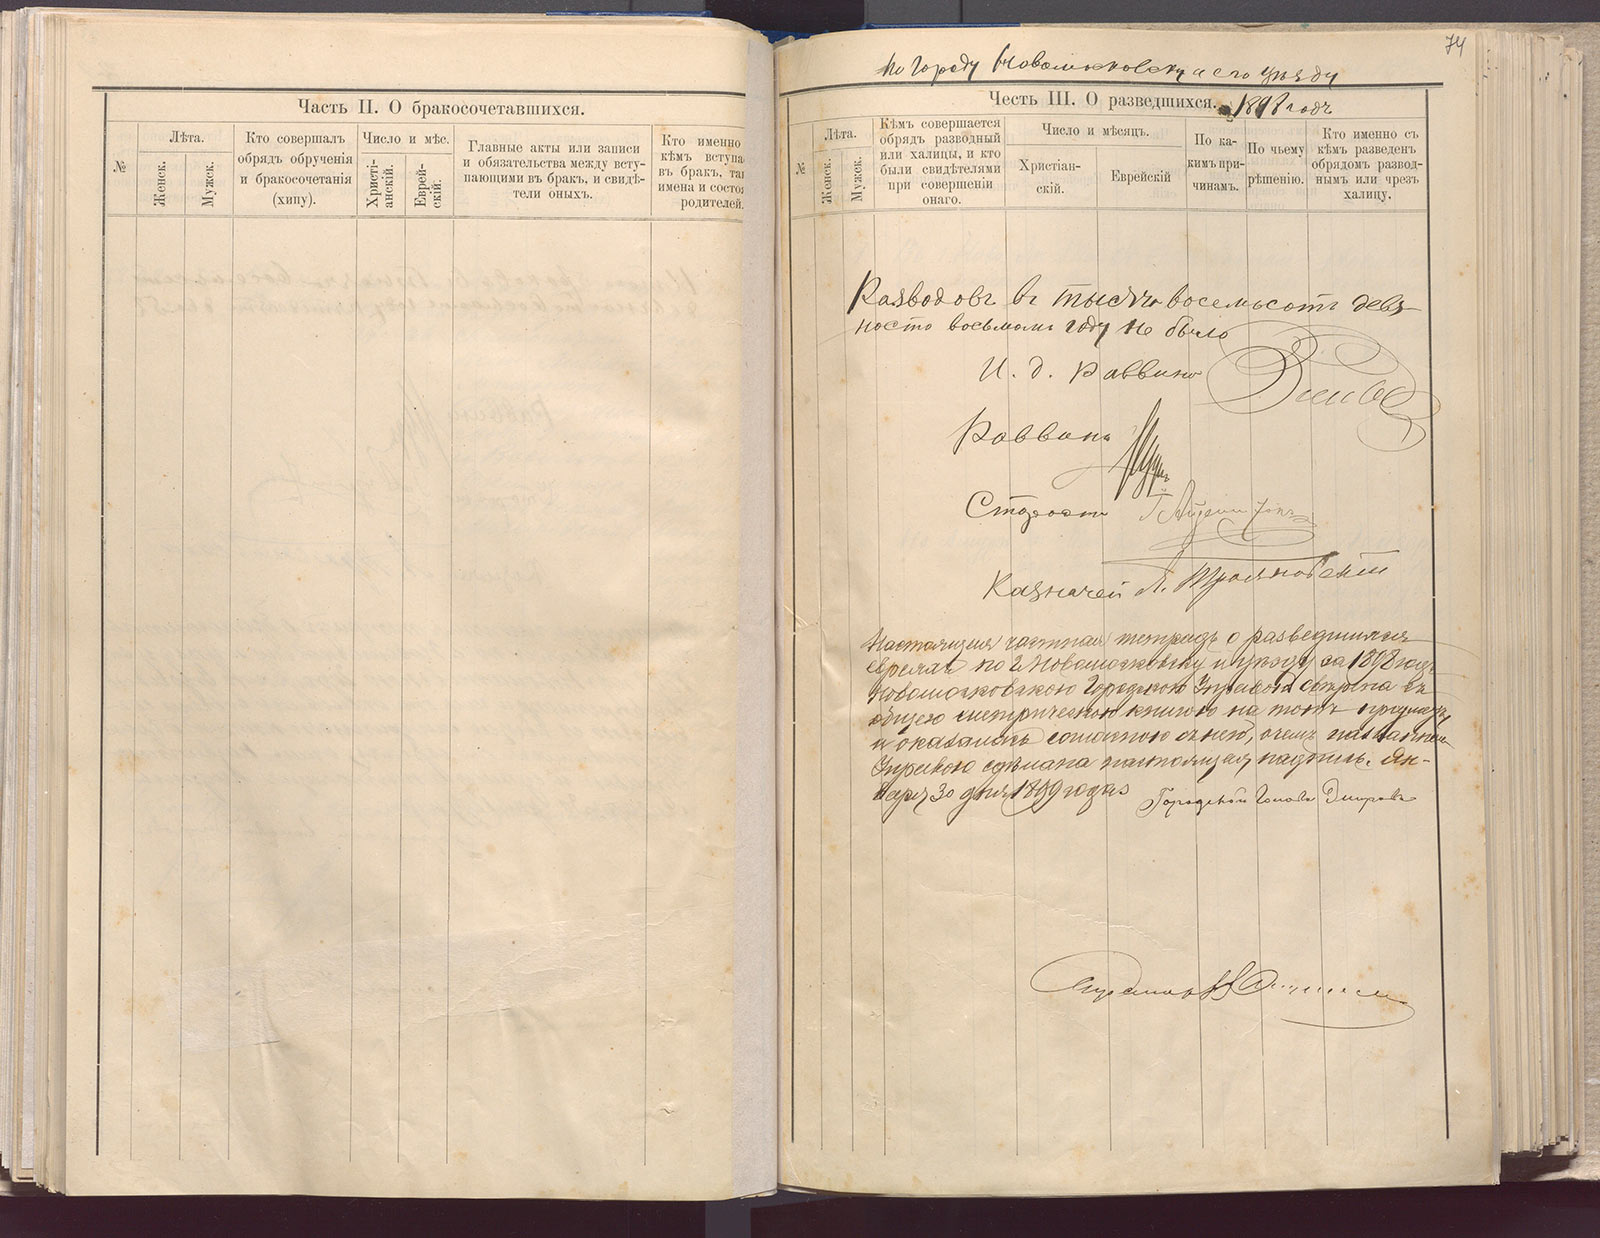 Часть II. О бракосочетавшихся.
№
Лѣта.
Женск.
Мужск.
Кто совершалъ
обрядъ обрученія
и бракосочетанія
(хипу).
Число и мѣс.
Христі-
анскій.
Еврей-
скій.
Главные акты или записи
и обязательства между всту-
пающими въ бракъ, и свидѣ-
тели оныхъ.
Кто именно
кѣмъ вступа
въ бракъ, та
имена и состо
родителей.
74
по городу Новомосковску и его уѣзду
Честь III. О разведшихся. 1898 годъ
№
Лѣта.
Женск.
Мужск.
Кѣмъ совершается
обрядъ разводный
или халицы, и кто
были свидѣтелями
при совершеніи
онаго.
Число и мѣсяцъ.
Христіан-
скій.
Еврейскій
По ка-
кимъ при-
чинамъ.
По чьему
рѣшенію.
Кто именно съ
кѣмъ разведенъ
обрядомъ развод-
нымъ или чрезъ
халицу.
Разводовъ въ тысяча восемьсотъ девя-
носто восьмомъ году не было
И. д. раввина
Раввинъ
Староста
Казначей Л. Трояновскій
Настоящая частная тетрадь о разведшихся
евреяхъ по г. Новомосковску и уѣзду за 1898 годъ
Новомосковскою Городскою Управою свѣрена съ
общею метрическою книгою на тотъ предметъ
и оказалась согласною съ нею, о чемъ названною
Управою сдѣлана настоящая надпись. Ян-
варя 30 дня 1899 года
Городской Голова